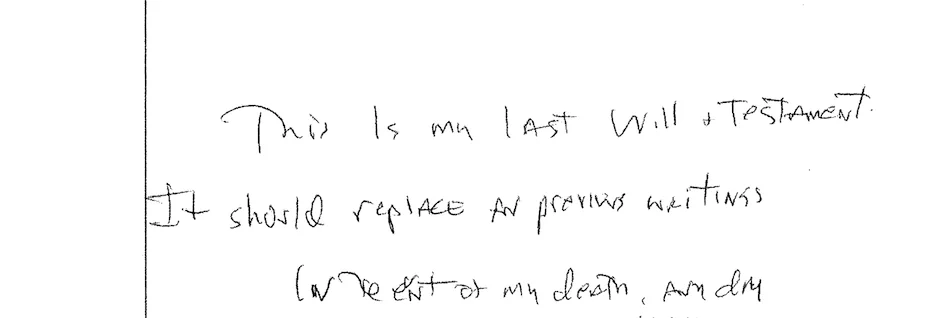 This Is my lAST Will + TesTAMENT.
It should replACE previous writiNgs
IN The of my death,